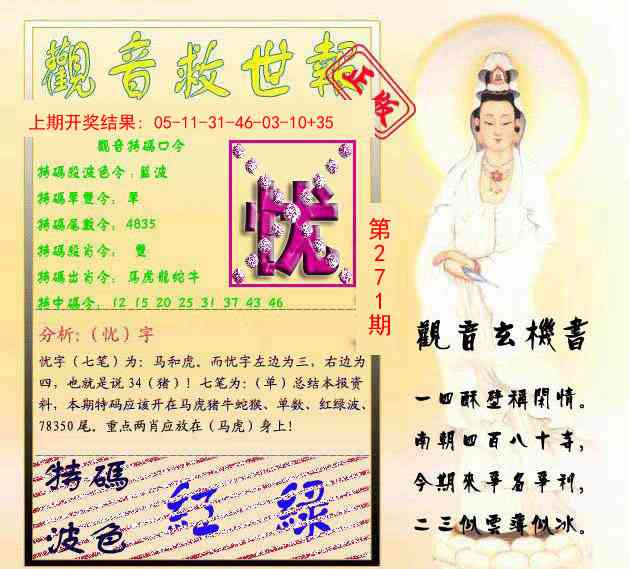 觀音救世報
正版
上期开奖结果：05-11-31-46-03-10+35
觀音特碼口令
特碼殺波色令：藍波
特碼單雙令：單
特碼尾數令：4835
特碼殺肖令： 雙
特碼出肖令：馬虎龍蛇牛
特中碼令：12 15 20 25 31 37 43 46
忧
第271期
分析:（忧）字
忧字（七笔）为：马和虎。而忧字左边为三，右边为
四，也就是说34（猪）！七笔为：（单）总结本报资
料，本期特码应该开在马虎猪牛蛇猴、单数、红绿波、
78350尾。重点两肖应放在（马虎）身上！
特碼
波色
紅 綠
觀音玄機書
一四酥壁稱閑情。
南朝四百八十寺，
今期來爭名爭利，
二三似雲薄似冰。